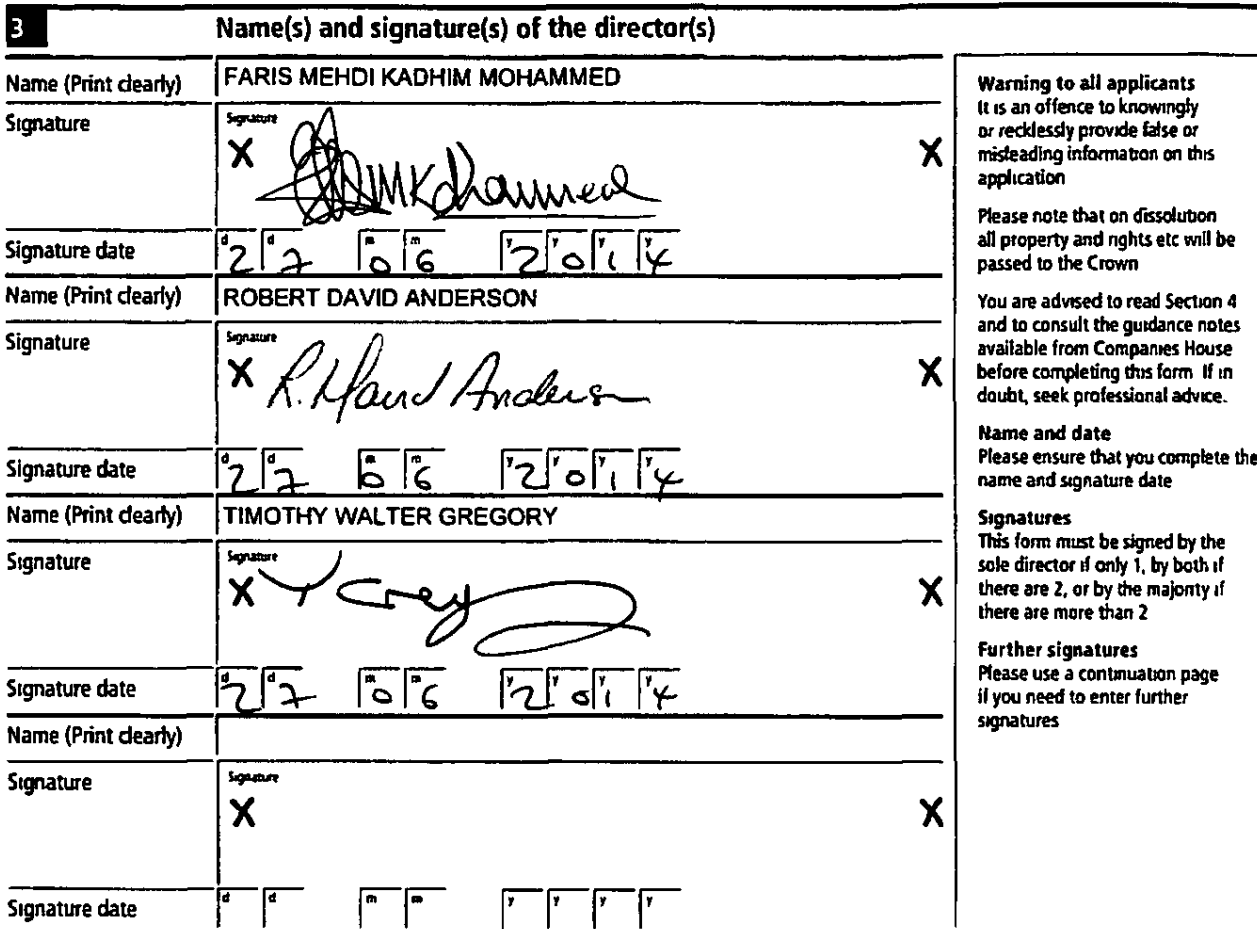 3 Name(s) and signature(s) of the director(s)
Name (Print clearly) FARIS MEHDI KADHIM MOHAMMED
Signature Signature
X X
Signature date d2 d7 m0 m6 y2 y0 y1 y4
Name (Print clearly) ROBERT DAVID ANDERSON
Signature Signature
X R. David Anderson X
Signature date d2 d7 m0 m6 y2 y0 y1 y4
Name (Print clearly) TIMOTHY WALTER GREGORY
Signature Signature
X X
Signature date d2 d7 m0 m6 y2 y0 y1 y4
Name (Print clearly)
Signature Signature
X X
Signature date d d m m y y y y
Warning to all applicants
It is an offence to knowingly
or recklessly provide false or
misleading information on this
application
Please note that on dissolution
all property and rights etc will be
passed to the Crown
You are advised to read Section 4
and to consult the guidance notes
available from Companies House
before completing this form If in
doubt, seek professional advice.
Name and date
Please ensure that you complete the
name and signature date
Signatures
This form must be signed by the
sole director if only 1, by both if
there are 2, or by the majority if
there are more than 2
Further signatures
Please use a continuation page
if you need to enter further
signatures